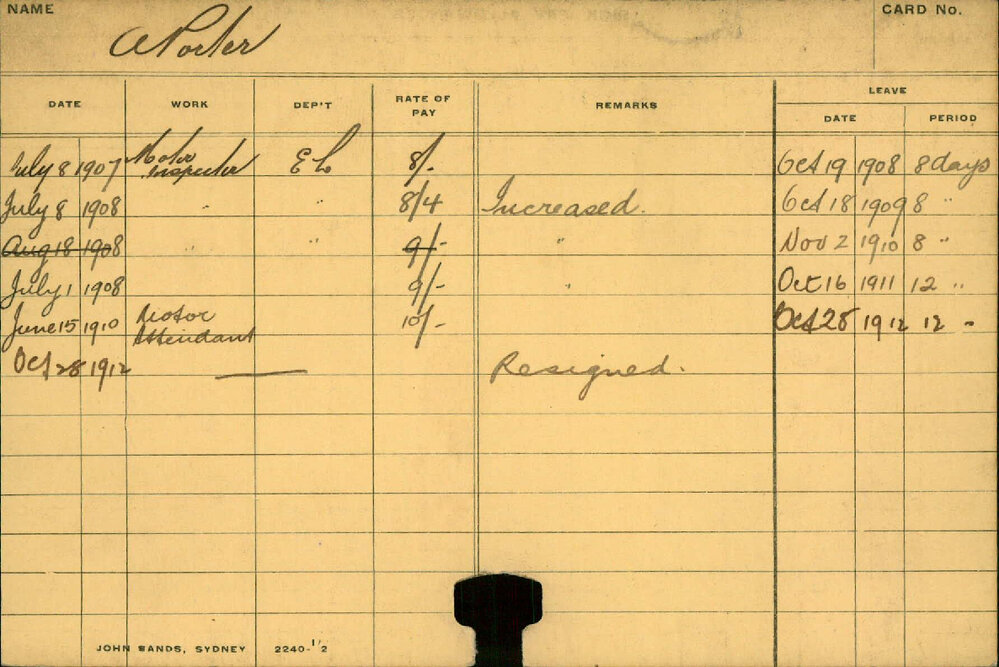 NAME
CARD No.
A Porter
DATE WORK DEP'T RATE OF PAY REMARKS LEAVE
DATE PERIOD
July 8 1907 Motor Inspector E L 8/- Oct 19 1908 8 days
July 8 1908 " " 8/4 Increased. Oct 18 1909 8 "
Aug 18 1908 " " 9/- " Nov 2 1910 8 "
July 1 1908 9/- " Oct 16 1911 12 "
June 15 1910 Motor Attendant 10/- Oct 28 1912 12 "
Oct 28 1912 — Resigned.
JOHN SANDS, SYDNEY 2240-1/2